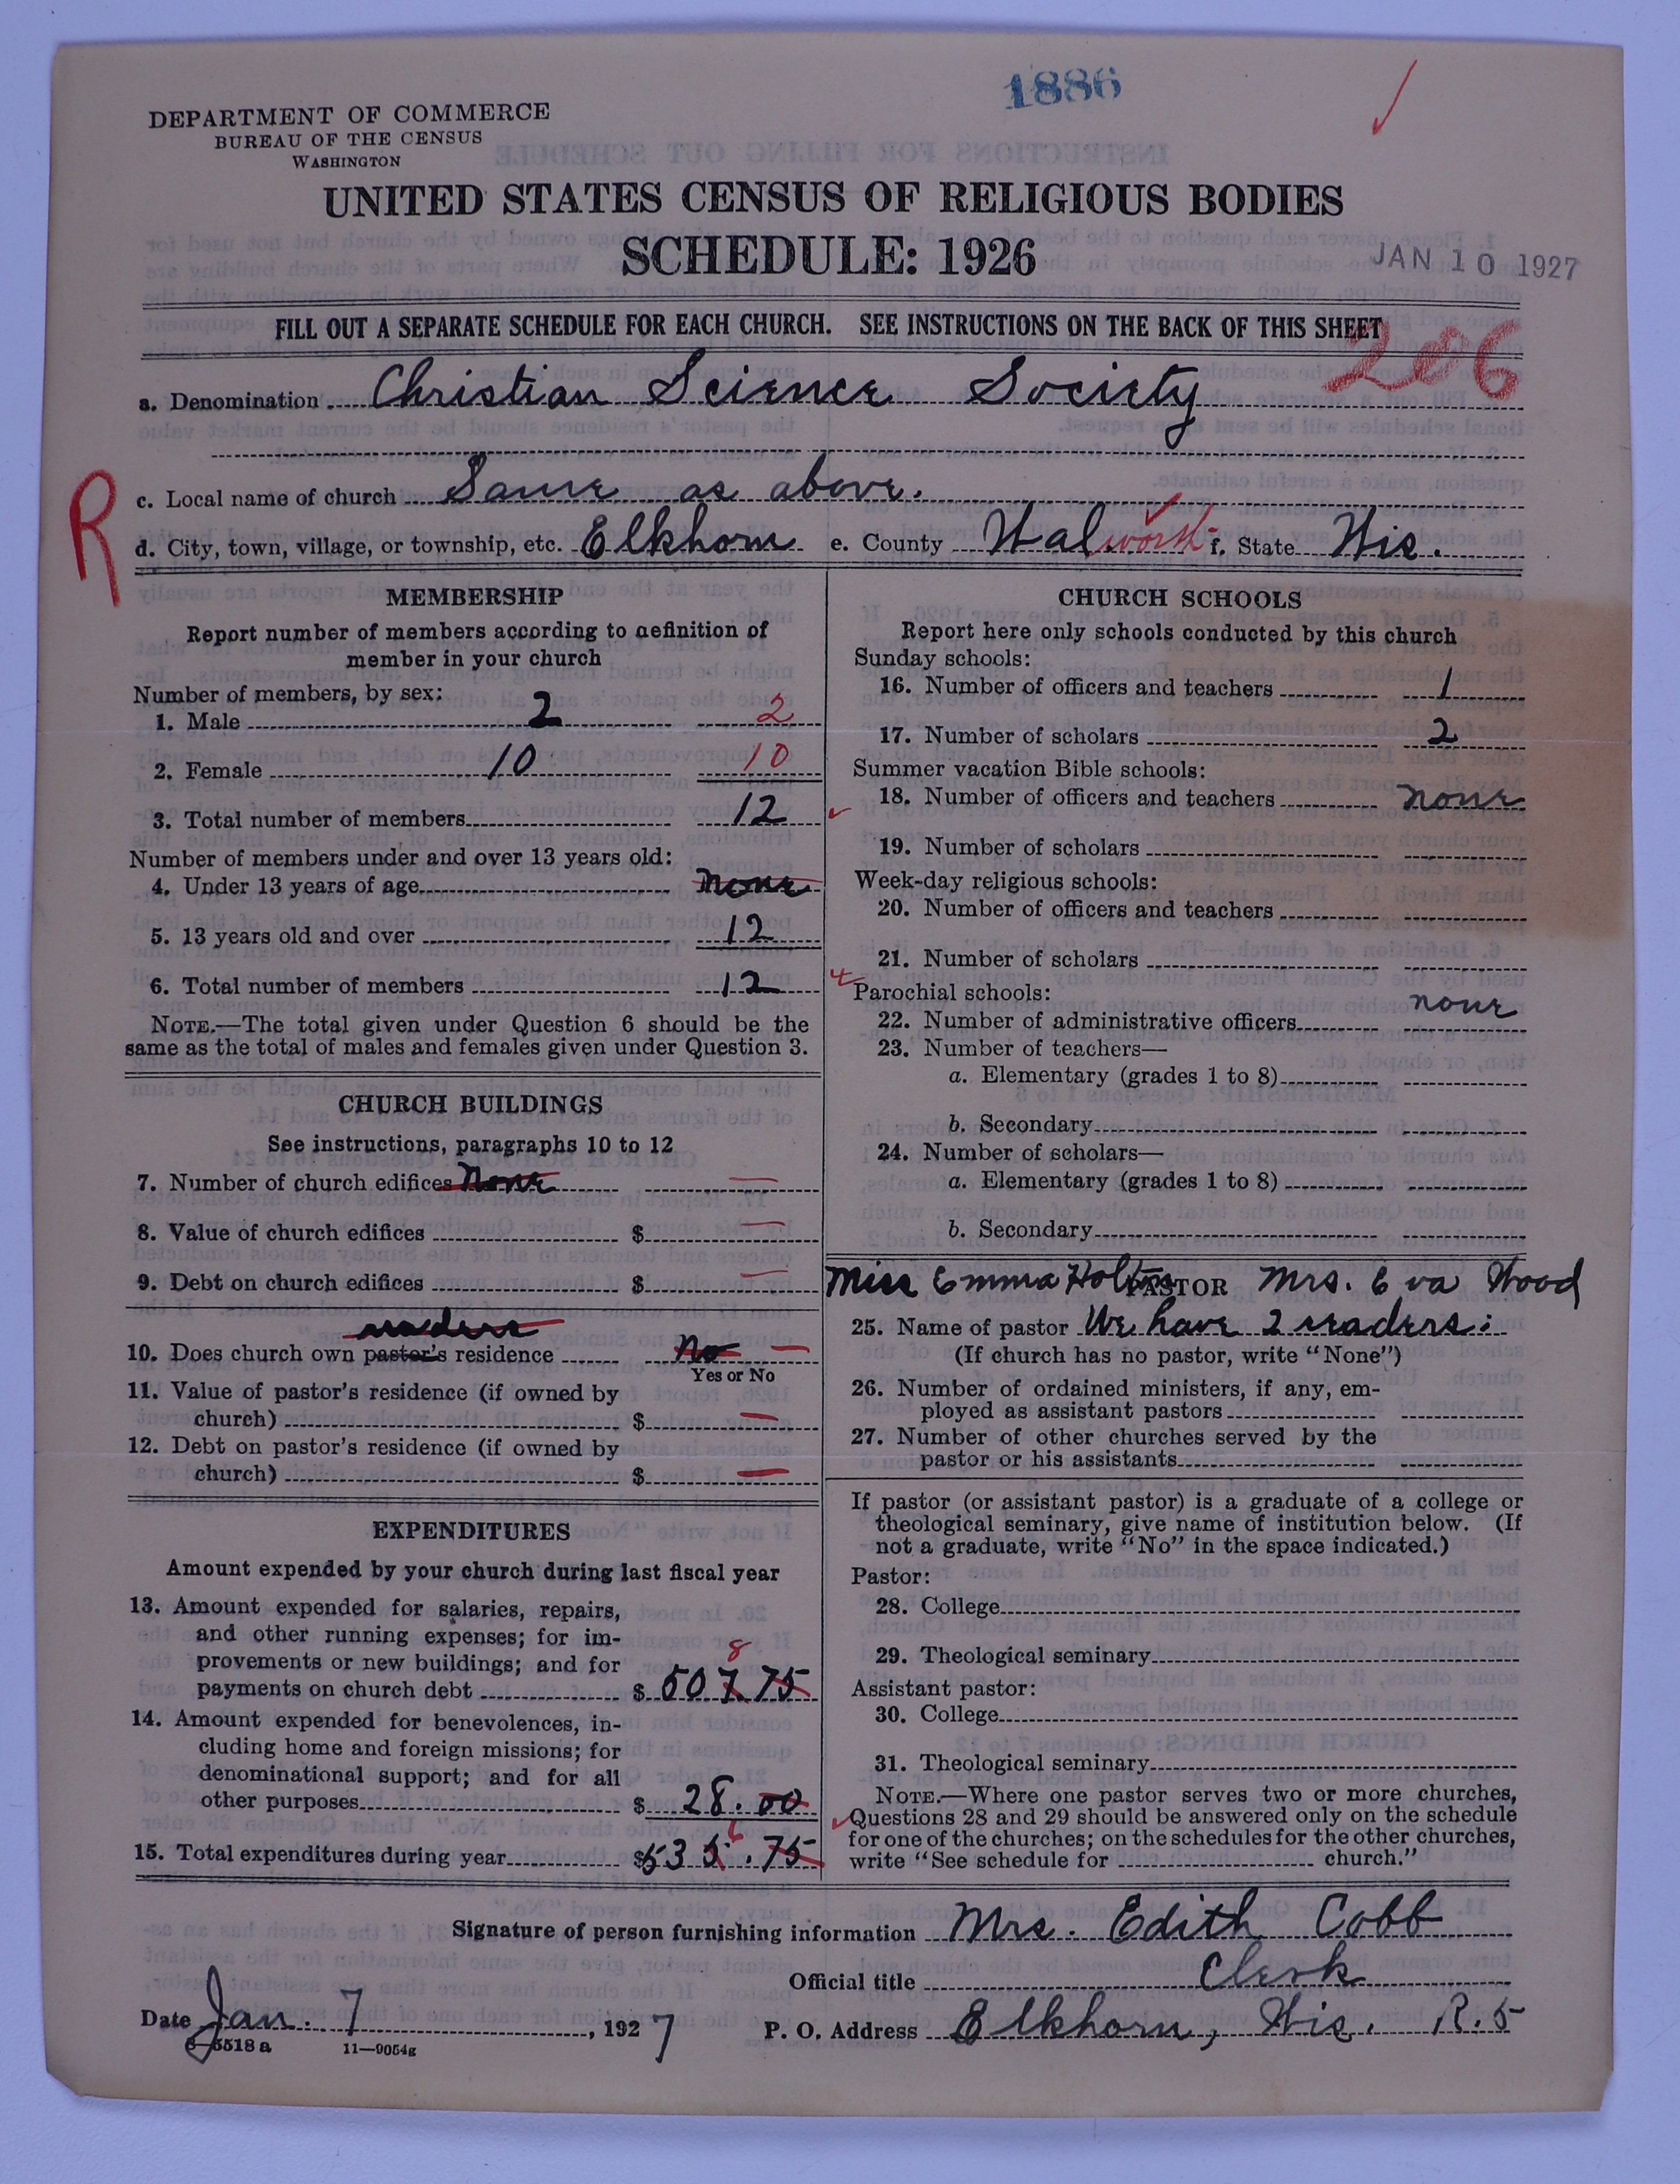 1886
DEPARTMENT OF COMMERCE
BUREAU OF THE CENSUS
WASHINGTON
UNITED STATES CENSUS OF RELIGIOUS BODIES
SCHEDULE: 1926
JAN 10 1927
FILL OUT A SEPARATE SCHEDULE FOR EACH CHURCH. SEE INSTRUCTIONS ON THE BACK OF THIS SHEET
206
a. Denomination Christian Science Society
R
c. Local name of church Same as above.
d. City, town, village, or township, etc. Elkhorn e. County Walworth f. State Wis.
MEMBERSHIP
Report number of members according to definition of
member in your church
Number of members, by sex:
1. Male 2 2
2. Female 10 10
3. Total number of members 12
Number of members under and over 13 years old:
4. Under 13 years of age none
5. 13 years old and over 12
6. Total number of members 12
NOTE.—The total given under Question 6 should be the
same as the total of males and females given under Question 3.
CHURCH BUILDINGS
See instructions, paragraphs 10 to 12
7. Number of church edifices None —
8. Value of church edifices $ —
9. Debt on church edifices $ —
readers
10. Does church own pastor's residence No —
Yes or No
11. Value of pastor's residence (if owned by
church) $ —
12. Debt on pastor's residence (if owned by
church) $ —
EXPENDITURES
Amount expended by your church during last fiscal year
13. Amount expended for salaries, repairs,
and other running expenses; for im-
provements or new buildings; and for
8
payments on church debt $ 507.75
14. Amount expended for benevolences, in-
cluding home and foreign missions; for
denominational support; and for all
other purposes $ 28.00
6
15. Total expenditures during year $535.75
CHURCH SCHOOLS
Report here only schools conducted by this church
Sunday schools:
16. Number of officers and teachers 1
17. Number of scholars 2
Summer vacation Bible schools:
18. Number of officers and teachers none
19. Number of scholars
Week-day religious schools:
20. Number of officers and teachers
21. Number of scholars
Parochial schools:
22. Number of administrative officers none
23. Number of teachers—
a. Elementary (grades 1 to 8)
b. Secondary
24. Number of scholars—
a. Elementary (grades 1 to 8)
b. Secondary
Miss Emma PASTOR Mrs. Eva Wood
25. Name of pastor We have 2 readers:
(If church has no pastor, write "None")
26. Number of ordained ministers, if any, em-
ployed as assistant pastors
27. Number of other churches served by the
pastor or his assistants
If pastor (or assistant pastor) is a graduate of a college or
theological seminary, give name of institution below. (If
not a graduate, write "No" in the space indicated.)
Pastor:
28. College
29. Theological seminary
Assistant pastor:
30. College
31. Theological seminary
NOTE.—Where one pastor serves two or more churches,
Questions 28 and 29 should be answered only on the schedule
for one of the churches; on the schedules for the other churches,
write "See schedule for church."
Signature of person furnishing information Mrs. Edith Cobb
Official title Clerk
Date Jan. 7, 1927 P. O. Address Elkhorn, Wis. R.5
8—5518 a 11—9054g